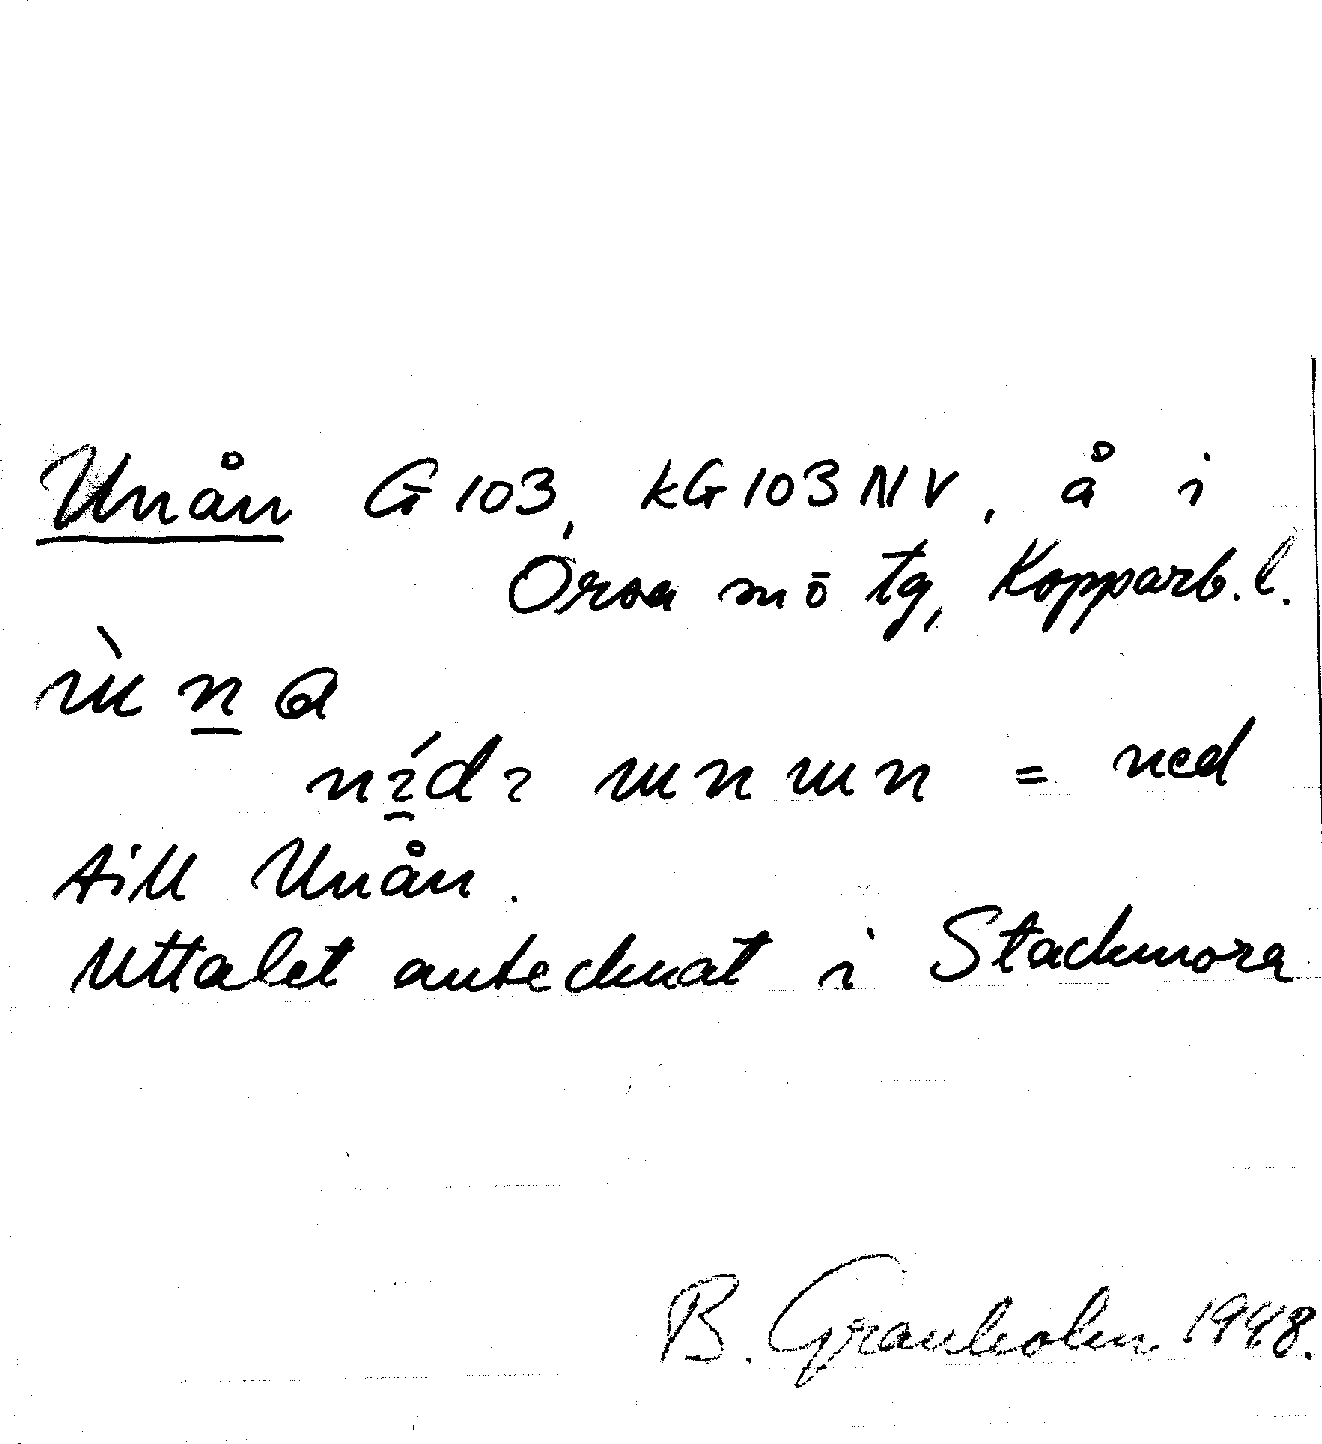 Unån G 103, kG 103 NV, å i
Orsa sn ō tg, Kopparb. l.
till Unån.
= ned
Uttalet antecknat i Stackmora
B. Granholm 1948.